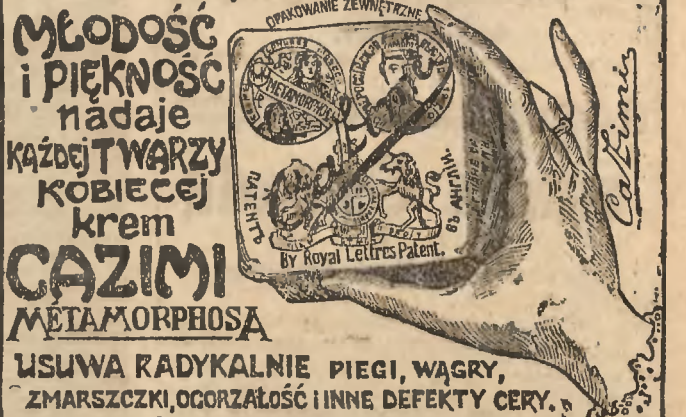 MŁODOŚĆ
i PIĘKNOŚĆ
nadaje
KAŻDEJ TWARZY
KOBIECEJ
krem
CAZIMI
METAMORPHOSA
OPAKOWANIE ZEWNĘTRZNE
METAMORPHOSA
PATENT
ВЪ АНГЛИ.
BY Royal Lettres Patent.
Cazimi
USUWA RADYKALNIE PIEGI, WĄGRY,
ZMARSZCZKI, OGORZAŁOŚĆ i INNE DEFEKTY CERY.